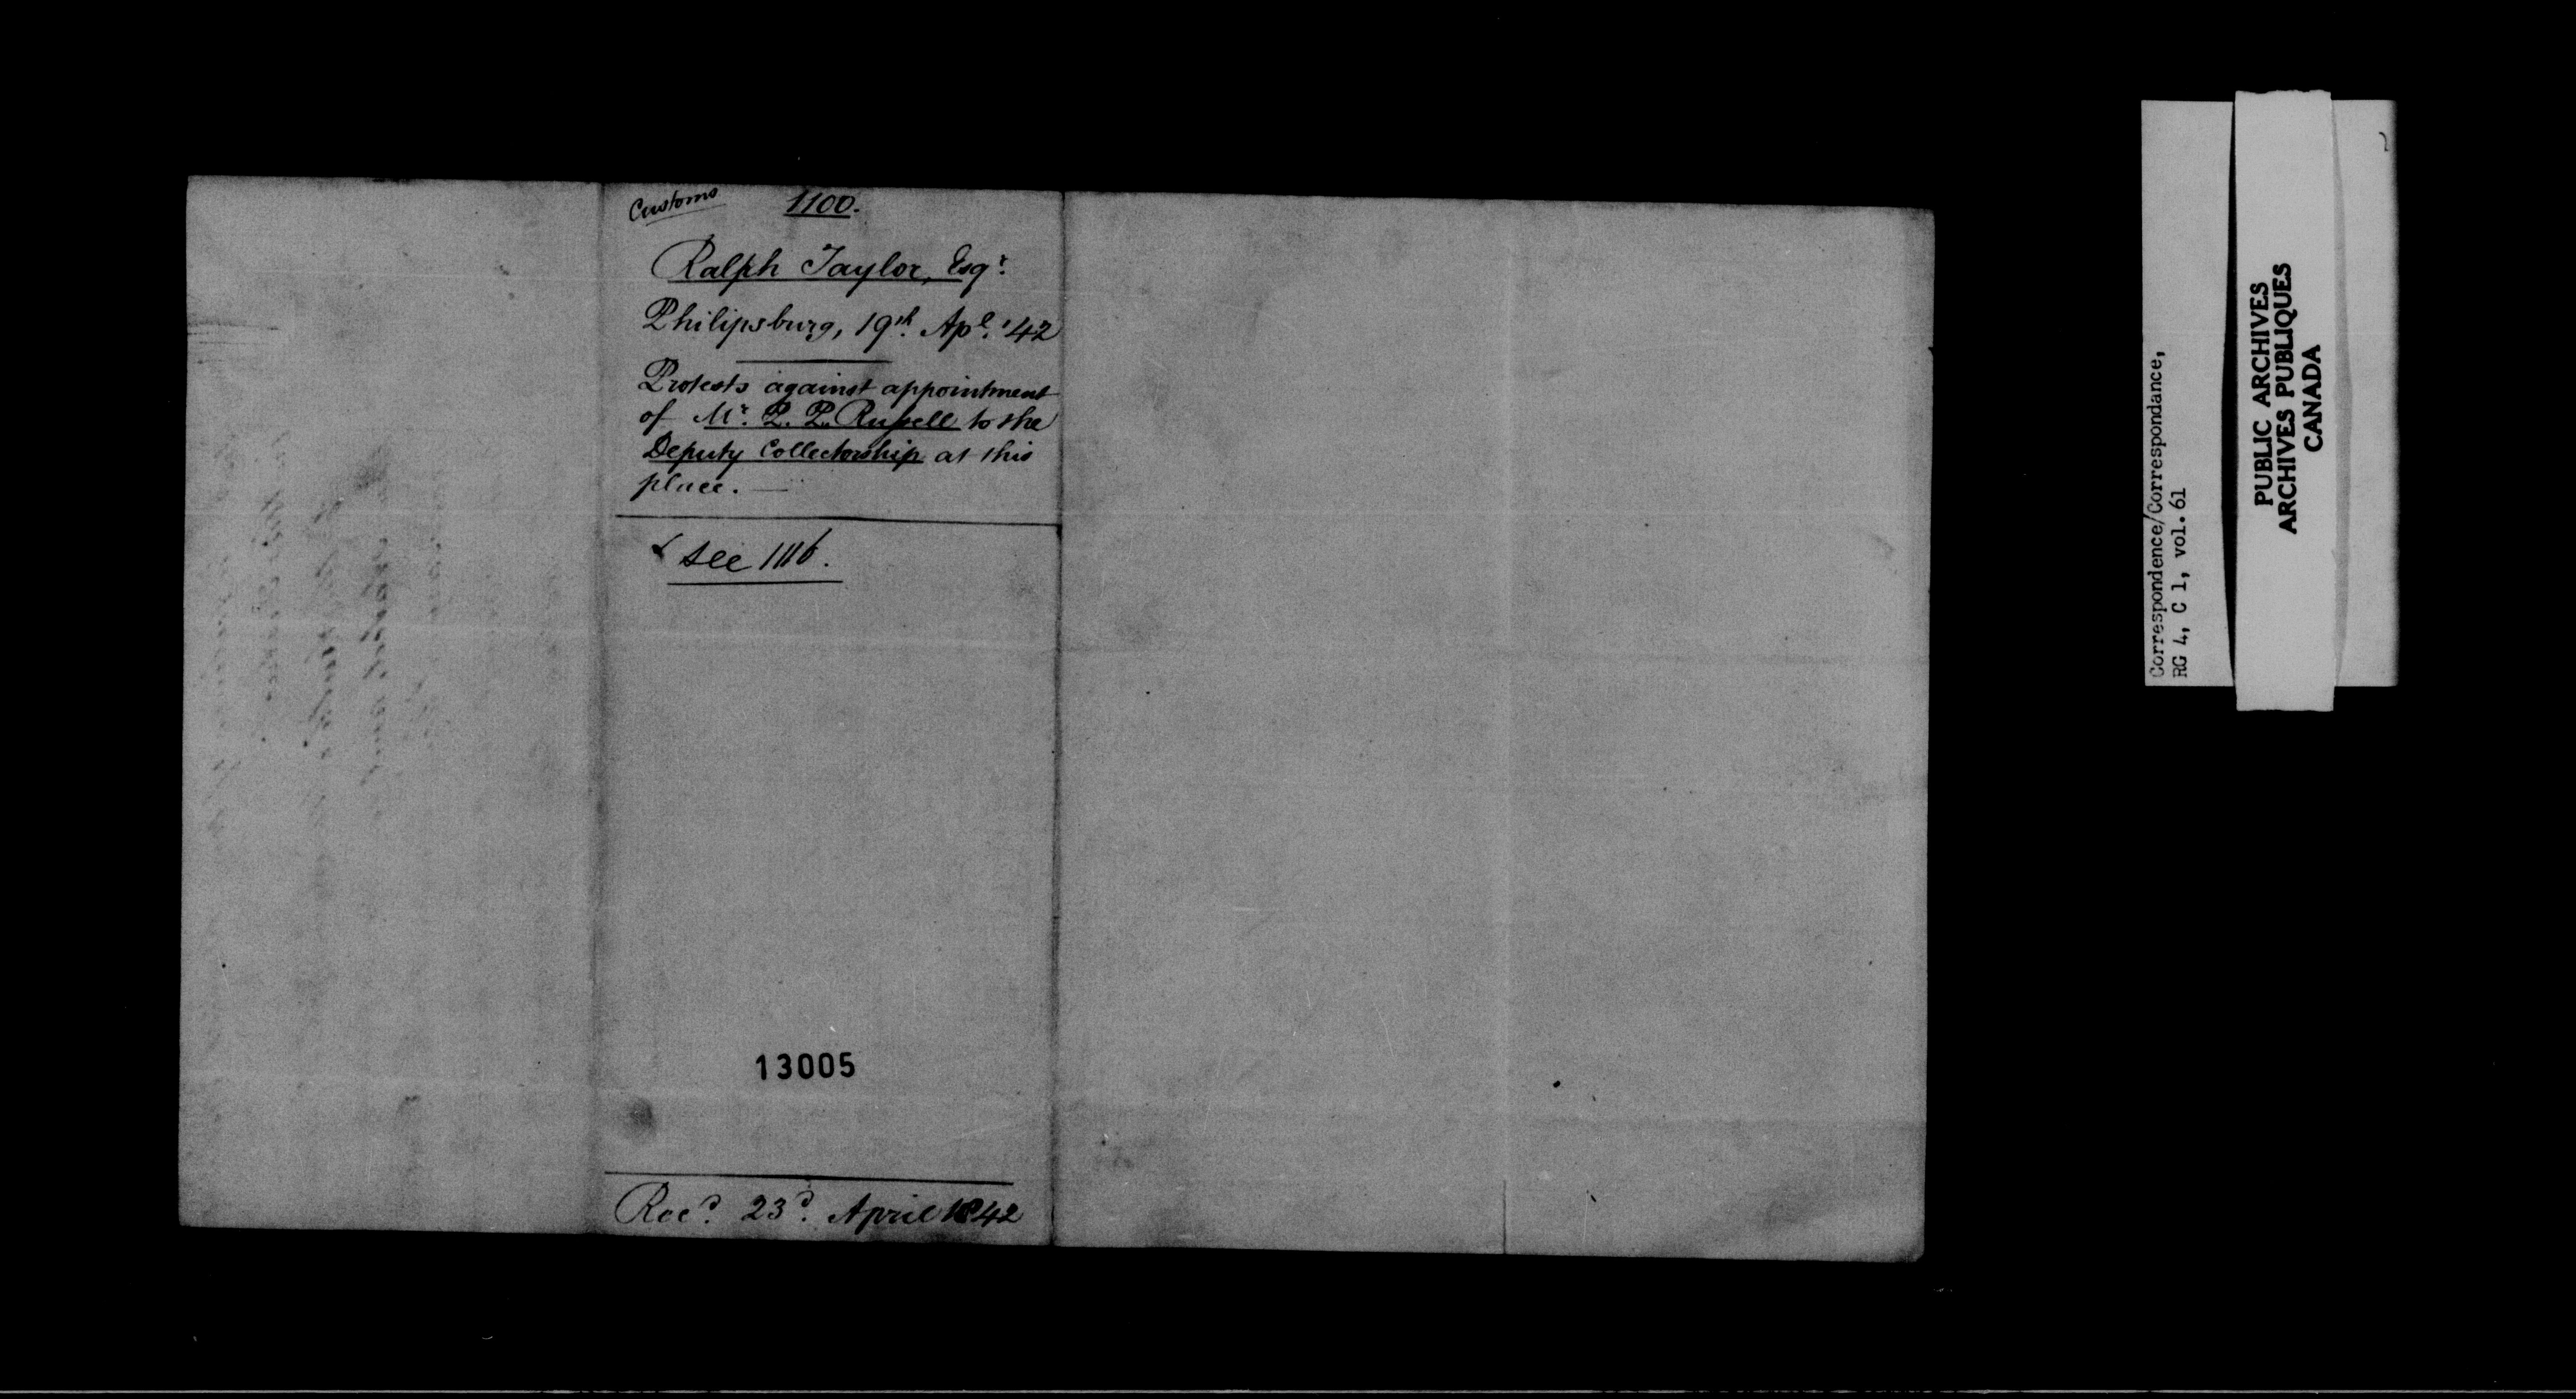 Customs
1100.
Ralph Taylor, Esqr.
Philipsburg, 19th. Apl. '42
Protests against appointment
of Mr. P. P. Russell to the
Deputy Collectorship at this
place. —
see 1116.
13005
Recd. 23d. April 1842
Correspondence/Correspondance,
RG 4, C 1, vol. 61
PUBLIC ARCHIVES
ARCHIVES PUBLIQUES
CANADA